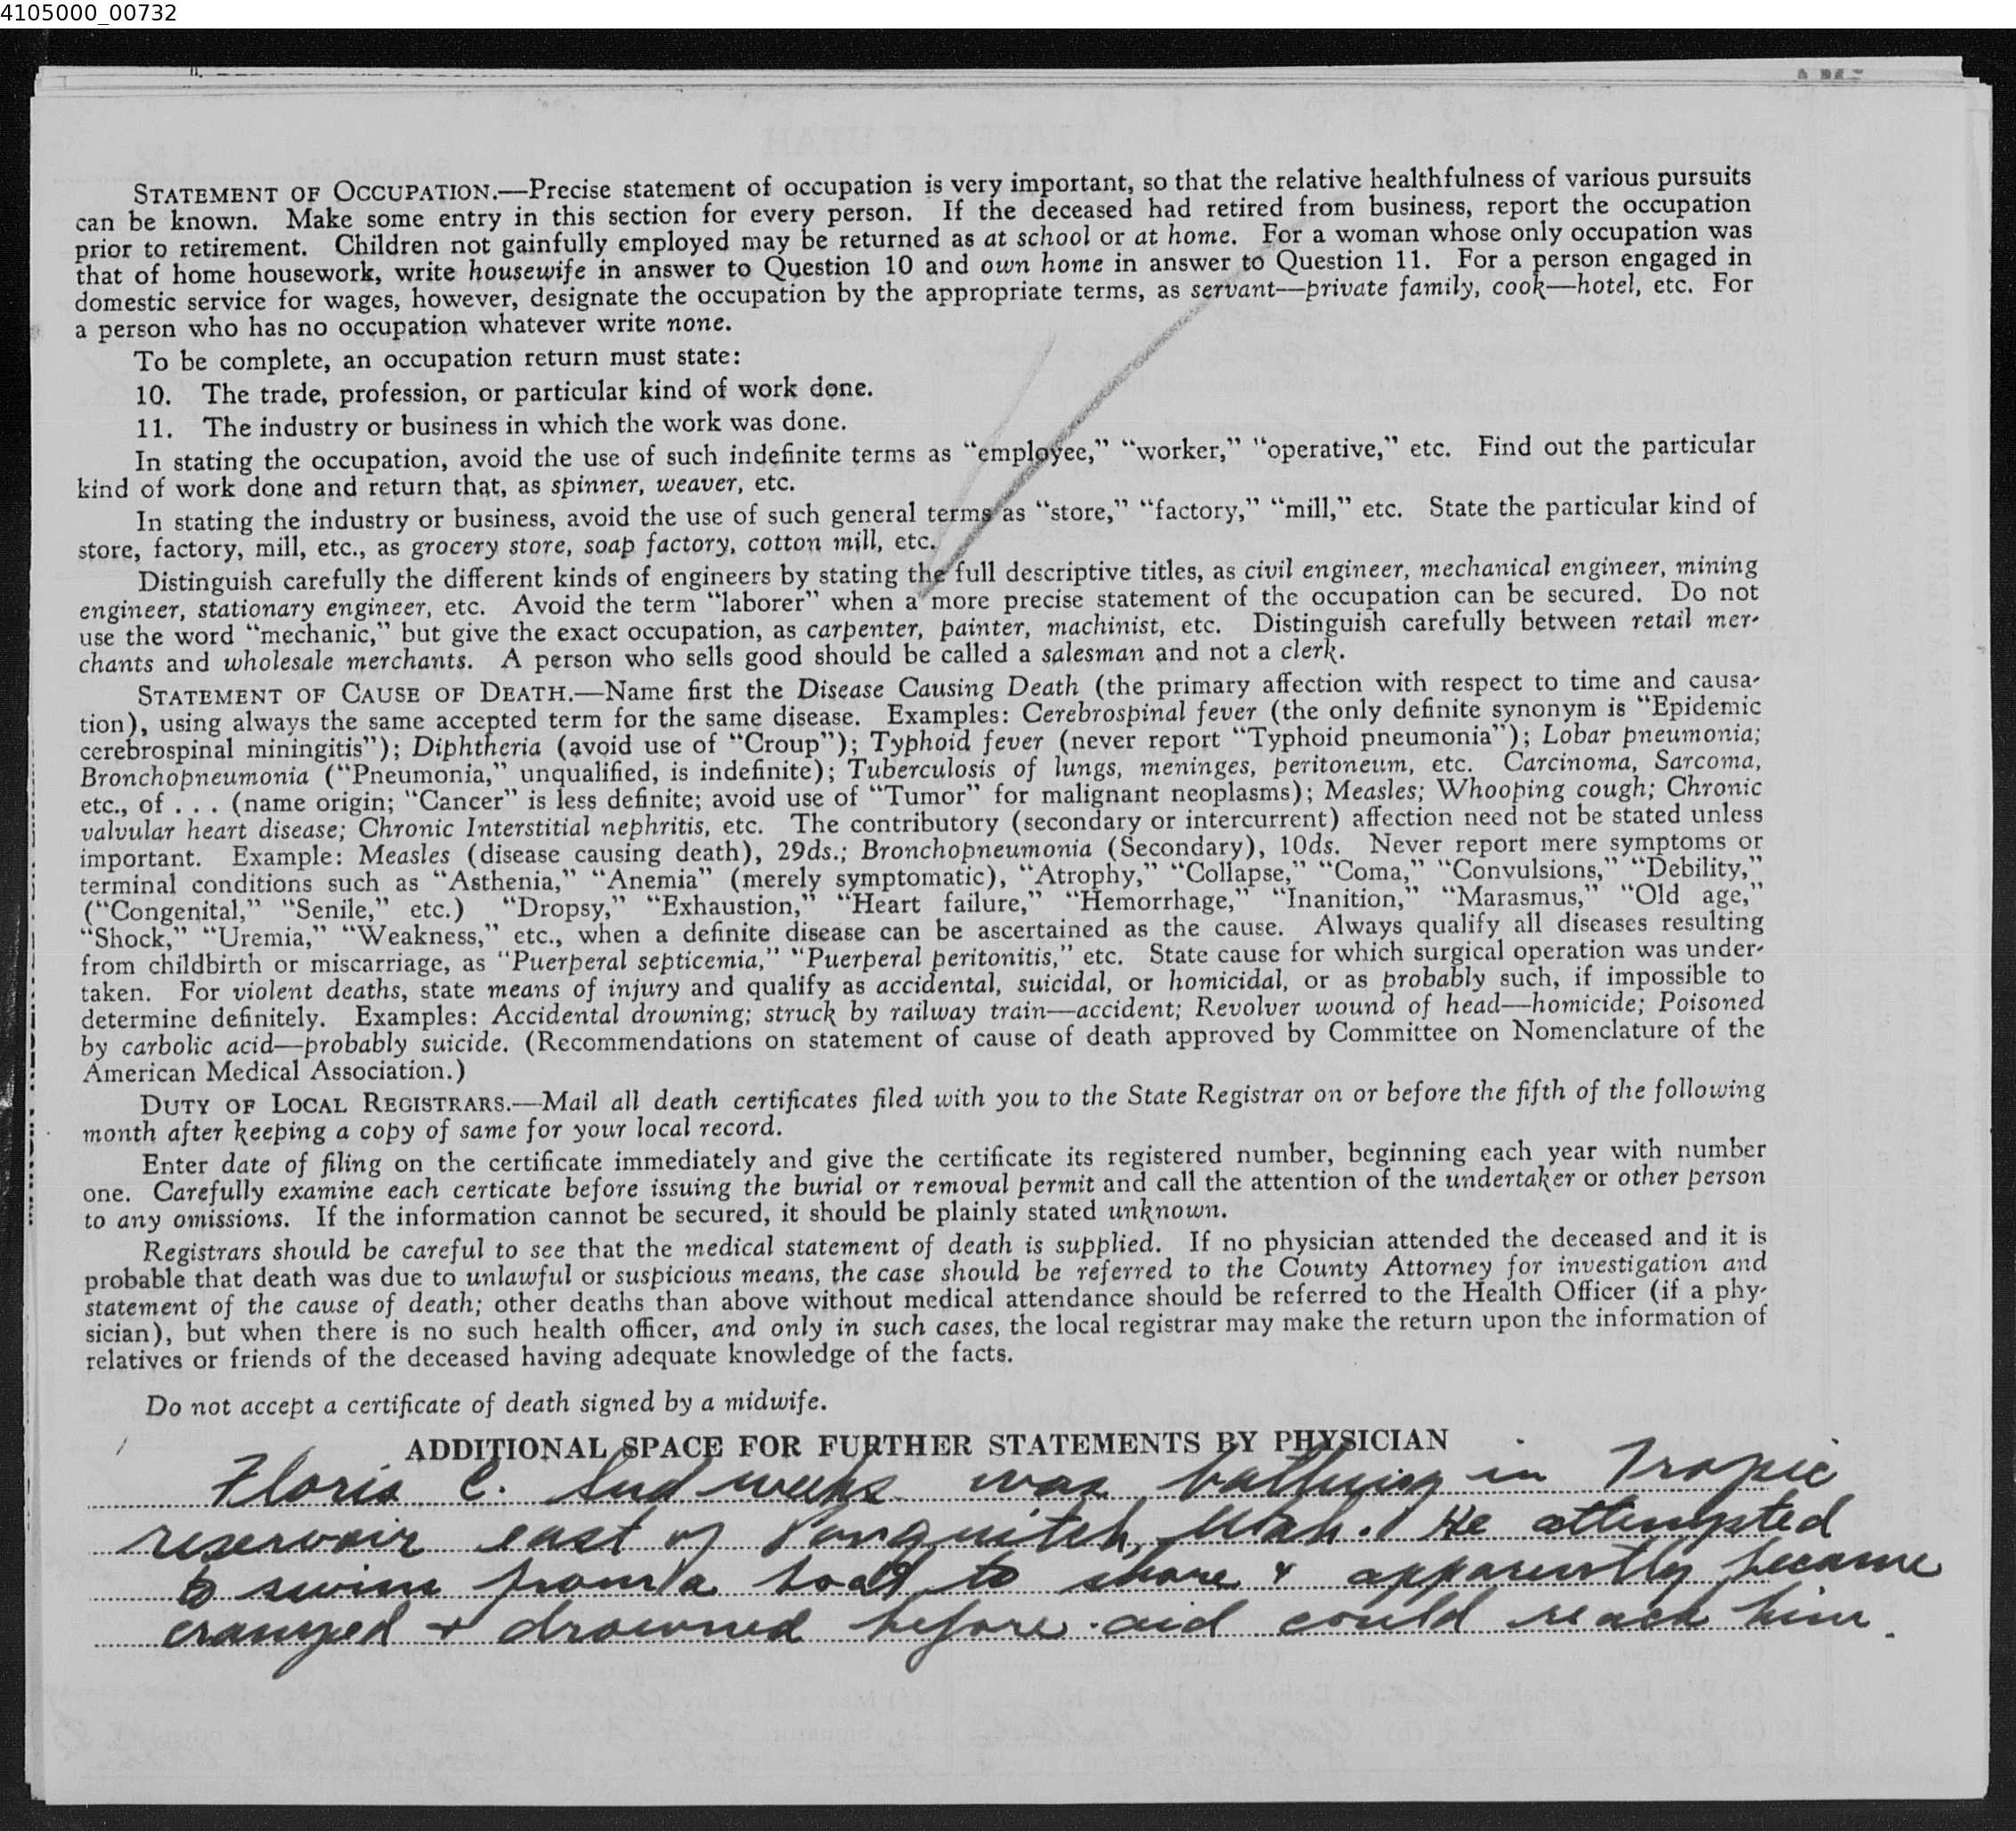 4105000_00732
STATEMENT OF OCCUPATION.—Precise statement of occupation is very important, so that the relative healthfulness of various pursuits
can be known. Make some entry in this section for every person. If the deceased had retired from business, report the occupation
prior to retirement. Children not gainfully employed may be returned as at school or at home. For a woman whose only occupation was
that of home housework, write housewife in answer to Question 10 and own home in answer to Question 11. For a person engaged in
domestic service for wages, however, designate the occupation by the appropriate terms, as servant—private family, cook—hotel, etc. For
a person who has no occupation whatever write none.
To be complete, an occupation return must state:
10. The trade, profession, or particular kind of work done.
11. The industry or business in which the work was done.
In stating the occupation, avoid the use of such indefinite terms as "employee," "worker," "operative," etc. Find out the particular
kind of work done and return that, as spinner, weaver, etc.
In stating the industry or business, avoid the use of such general terms as "store," "factory," "mill," etc. State the particular kind of
store, factory, mill, etc., as grocery store, soap factory, cotton mill, etc.
Distinguish carefully the different kinds of engineers by stating the full descriptive titles, as civil engineer, mechanical engineer, mining
engineer, stationary engineer, etc. Avoid the term "laborer" when a more precise statement of the occupation can be secured. Do not
use the word "mechanic," but give the exact occupation, as carpenter, painter, machinist, etc. Distinguish carefully between retail mer-
chants and wholesale merchants. A person who sells good should be called a salesman and not a clerk.
STATEMENT OF CAUSE OF DEATH.—Name first the Disease Causing Death (the primary affection with respect to time and causa-
tion), using always the same accepted term for the same disease. Examples: Cerebrospinal fever (the only definite synonym is "Epidemic
cerebrospinal miningitis"); Diphtheria (avoid use of "Croup"); Typhoid fever (never report "Typhoid pneumonia"); Lobar pneumonia;
Bronchopneumonia ("Pneumonia," unqualified, is indefinite); Tuberculosis of lungs, meninges, peritoneum, etc. Carcinoma, Sarcoma,
etc., of . . . (name origin; "Cancer" is less definite; avoid use of "Tumor" for malignant neoplasms); Measles; Whooping cough; Chronic
valvular heart disease; Chronic Interstitial nephritis, etc. The contributory (secondary or intercurrent) affection need not be stated unless
important. Example: Measles (disease causing death), 29ds.; Bronchopneumonia (Secondary), 10ds. Never report mere symptoms or
terminal conditions such as "Asthenia," "Anemia" (merely symptomatic), "Atrophy," "Collapse," "Coma," "Convulsions," "Debility,"
("Congenital," "Senile," etc.) "Dropsy," "Exhaustion," "Heart failure," "Hemorrhage," "Inanition," "Marasmus," "Old age,"
"Shock," "Uremia," "Weakness," etc., when a definite disease can be ascertained as the cause. Always qualify all diseases resulting
from childbirth or miscarriage, as "Puerperal septicemia," "Puerperal peritonitis," etc. State cause for which surgical operation was under-
taken. For violent deaths, state means of injury and qualify as accidental, suicidal, or homicidal, or as probably such, if impossible to
determine definitely. Examples: Accidental drowning; struck by railway train—accident; Revolver wound of head—homicide; Poisoned
by carbolic acid—probably suicide. (Recommendations on statement of cause of death approved by Committee on Nomenclature of the
American Medical Association.)
DUTY OF LOCAL REGISTRARS.—Mail all death certificates filed with you to the State Registrar on or before the fifth of the following
month after keeping a copy of same for your local record.
Enter date of filing on the certificate immediately and give the certificate its registered number, beginning each year with number
one. Carefully examine each certicate before issuing the burial or removal permit and call the attention of the undertaker or other person
to any omissions. If the information cannot be secured, it should be plainly stated unknown.
Registrars should be careful to see that the medical statement of death is supplied. If no physician attended the deceased and it is
probable that death was due to unlawful or suspicious means, the case should be referred to the County Attorney for investigation and
statement of the cause of death; other deaths than above without medical attendance should be referred to the Health Officer (if a phy-
sician), but when there is no such health officer, and only in such cases, the local registrar may make the return upon the information of
relatives or friends of the deceased having adequate knowledge of the facts.
Do not accept a certificate of death signed by a midwife.
ADDITIONAL SPACE FOR FURTHER STATEMENTS BY PHYSICIAN
Floris C. Sudweeks was bathing in Tropic
reservoir east of Panguitch, Utah. He attempted
to swim from a boat to shore & apparently became
cramped & drowned before aid could reach him.